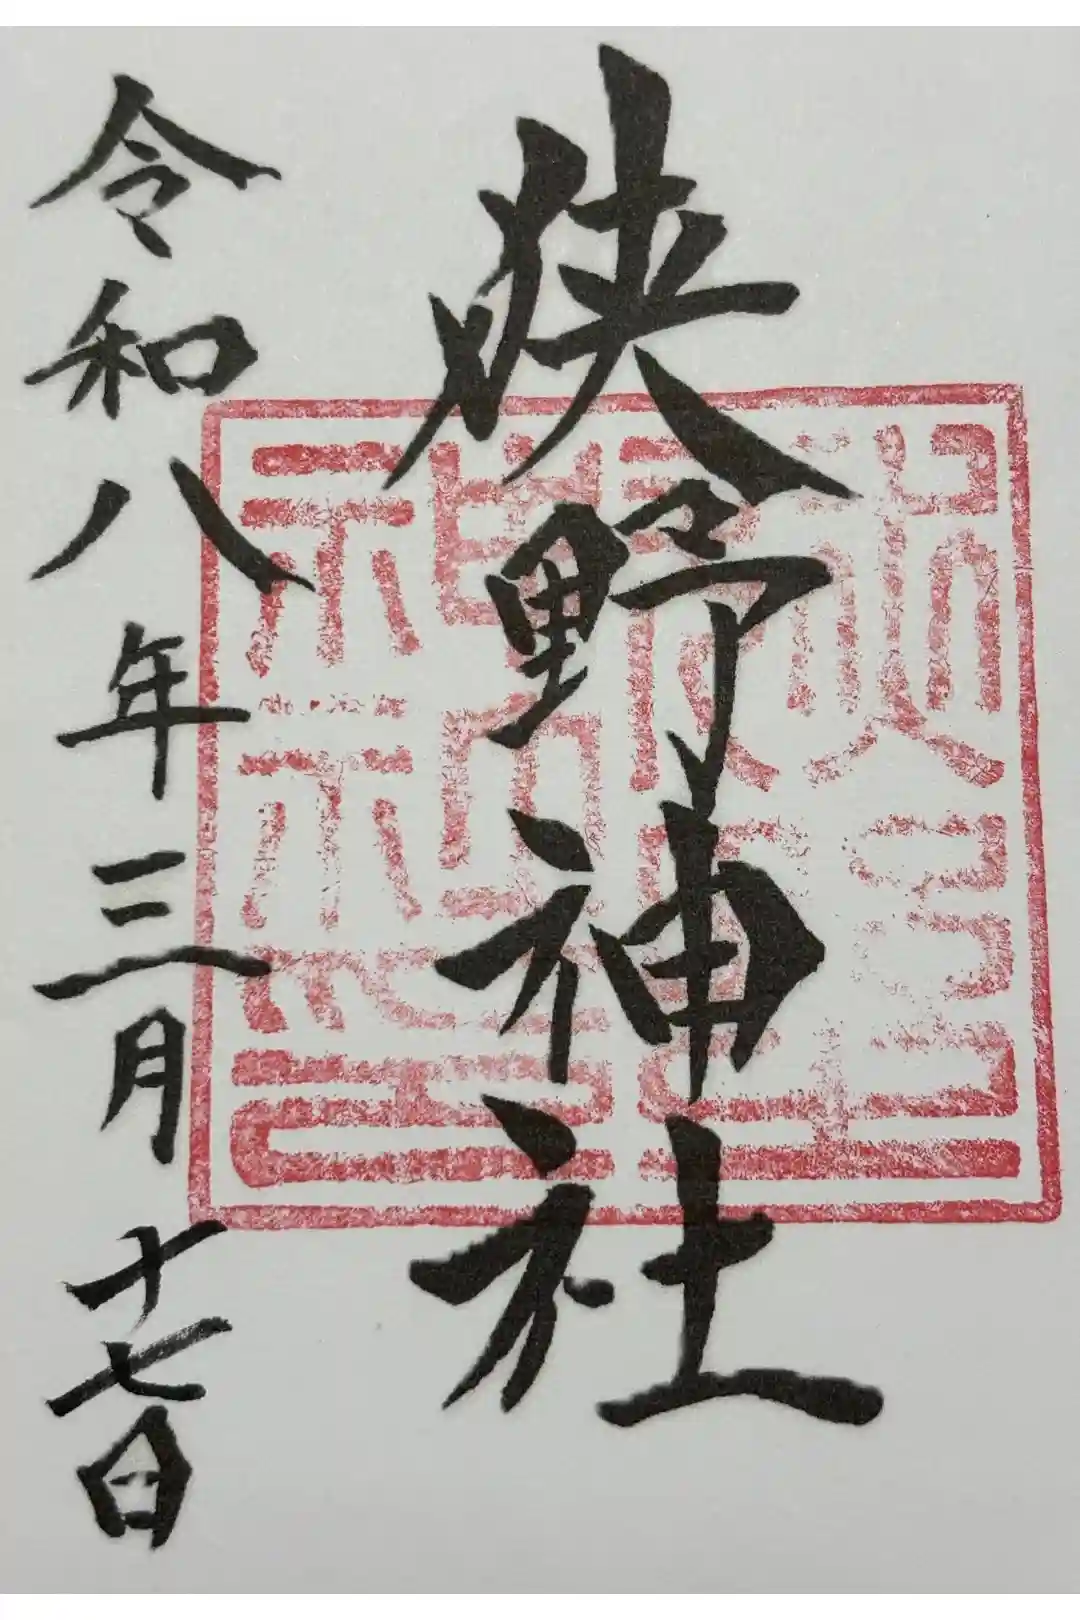 狹野神社
令和八年三月十七日